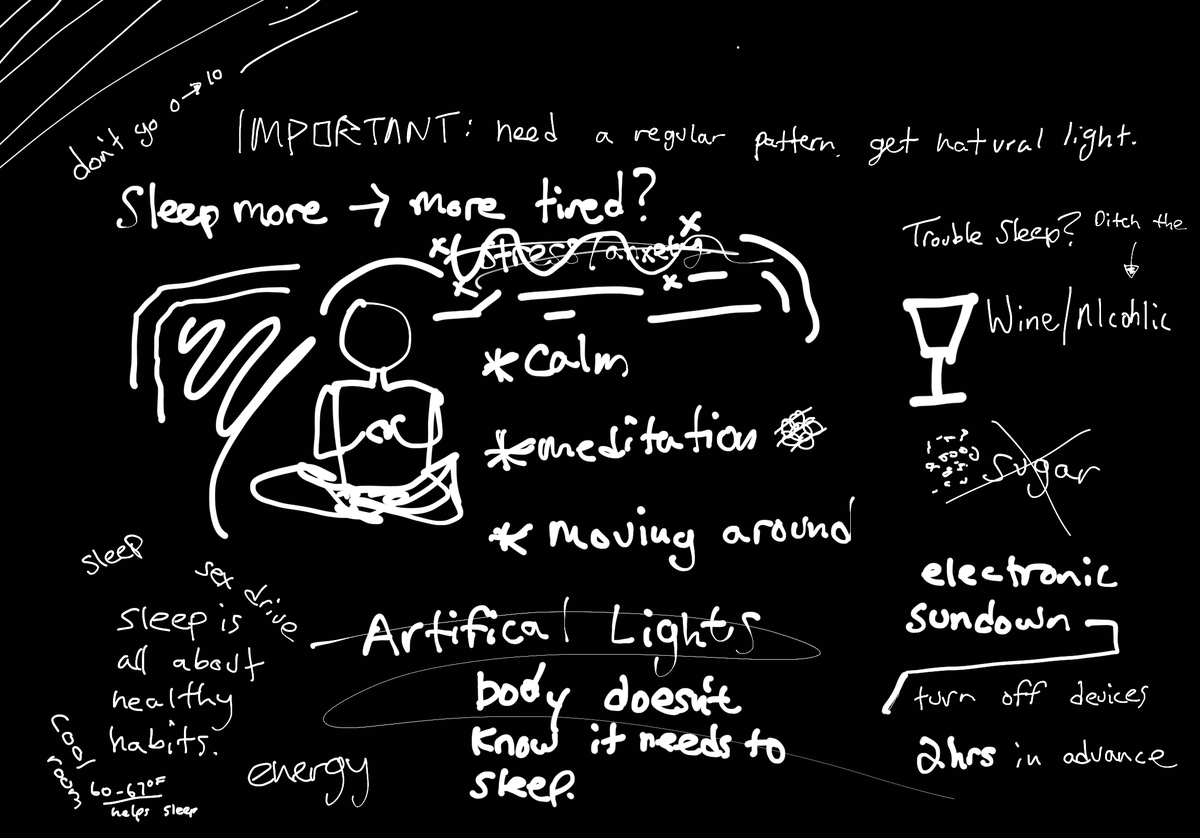 don't go 0→10
IMPORTANT: need a regular pattern. get natural light.
Sleep more → more tired?
stress/anxety
Trouble Sleep? Ditch the
Wine/Alcohlic
* calm
* meditation
sugar
* moving around
sleep
sex drive
electronic
sundown
sleep is
all about
healthy
habits.
Artifical Lights
body doesn't
know it needs to
sleep.
turn off devices
2hrs in advance
cool room
60-67°F
helps sleep
energy